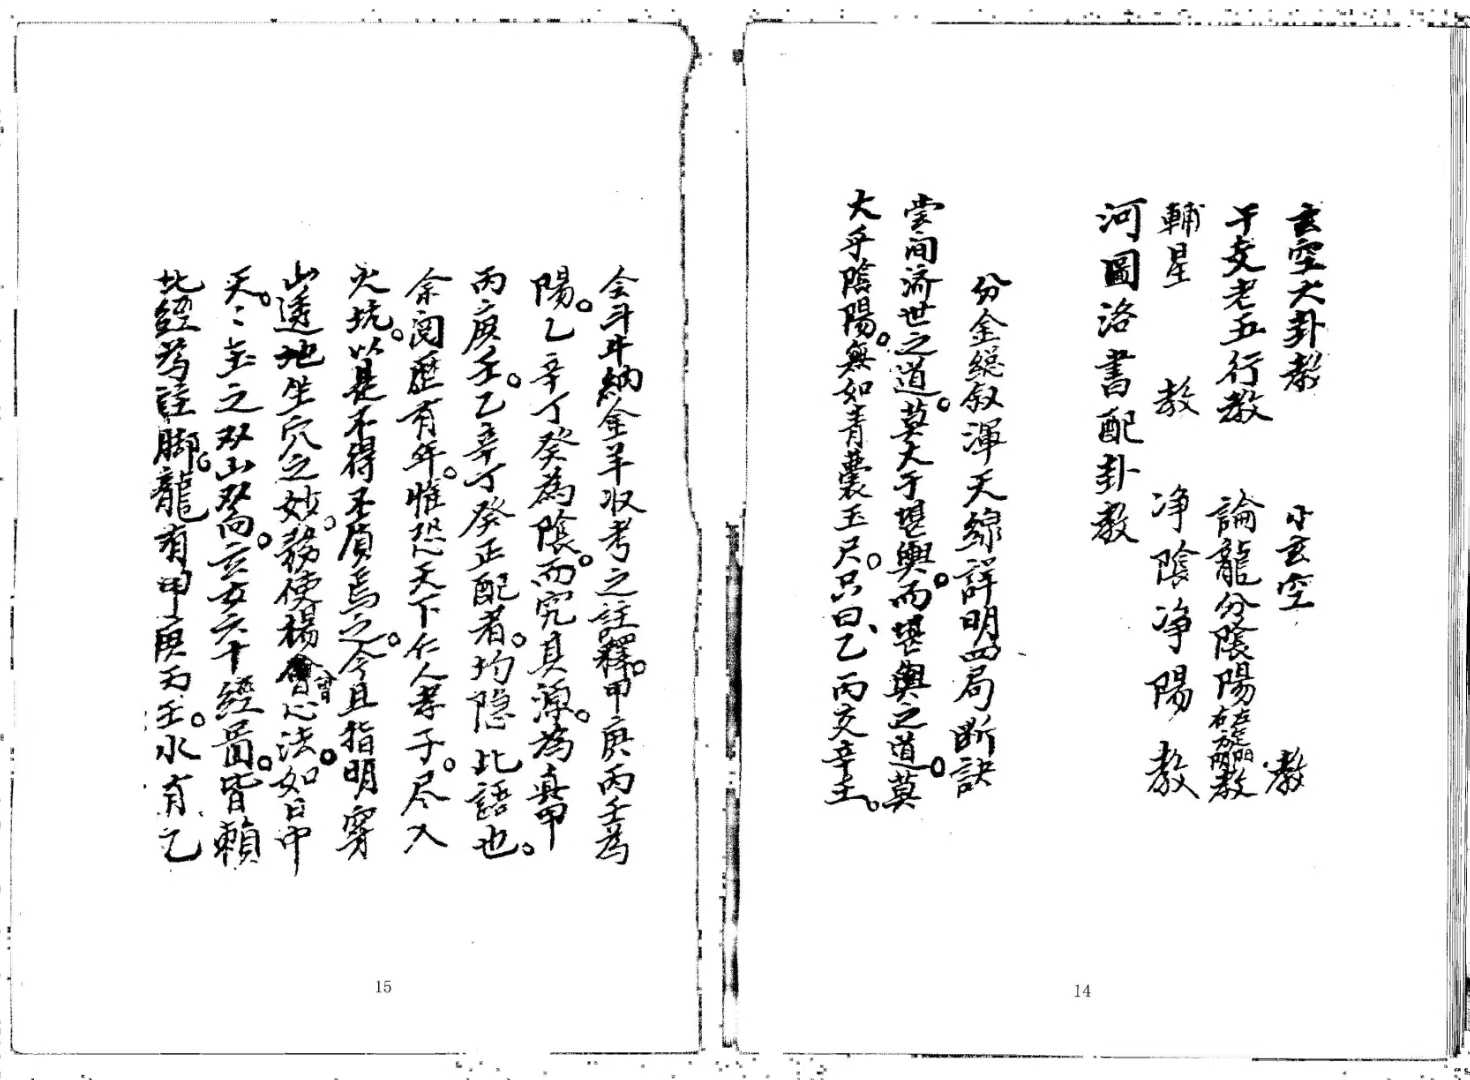 玄空大卦教　小玄空　教
干支老五行教　論龍分陰陽左旋右旋兩教
輔星　教　净陰净陽　教
河圖洛書配卦教
分金總叙渾天線詳明四局断訣
尝间济世之道。莫大于堪輿。而堪輿之道。莫
大乎陰陽。無如青囊玉尺。只曰、乙丙交辛壬。
会斗牛納金羊收考之註釋。甲庚丙壬為
陽。乙辛丁癸為陰。而究其源。為真甲
丙庚壬。乙辛丁癸正配者。均隐此語也。
余閲歷有年。惟恐天下仁人孝子。尽入
火坑。以是不得不質焉之。今且指明穿
山透地坐穴之妙。務使楊曾心法。如日中
天。〻至之双山双向。六十經畐。皆賴
此經為註脚。龍有甲庚丙壬。水有乙
15
14